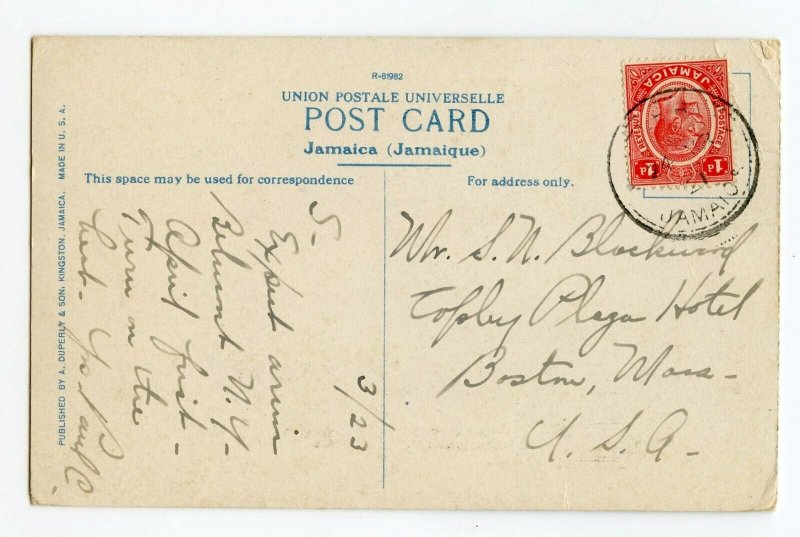 R-81982
UNION POSTALE UNIVERSELLE
POST CARD
Jamaica (Jamaique)
This space may be used for correspondence
For address only.
PUBLISHED BY A. DUPERLY & SON, KINGSTON, JAMAICA. MADE IN U. S. A.
JAMAICA
POSTAGE
REVENUE
1d 1d
JAMAICA
S-
Expect arrive
Belmont N.Y-
April first-
Turn on the
heat-
3/23
Mr. S. N. Blackwood
Copley Plaza Hotel
Boston, Mass-
U. S. A-